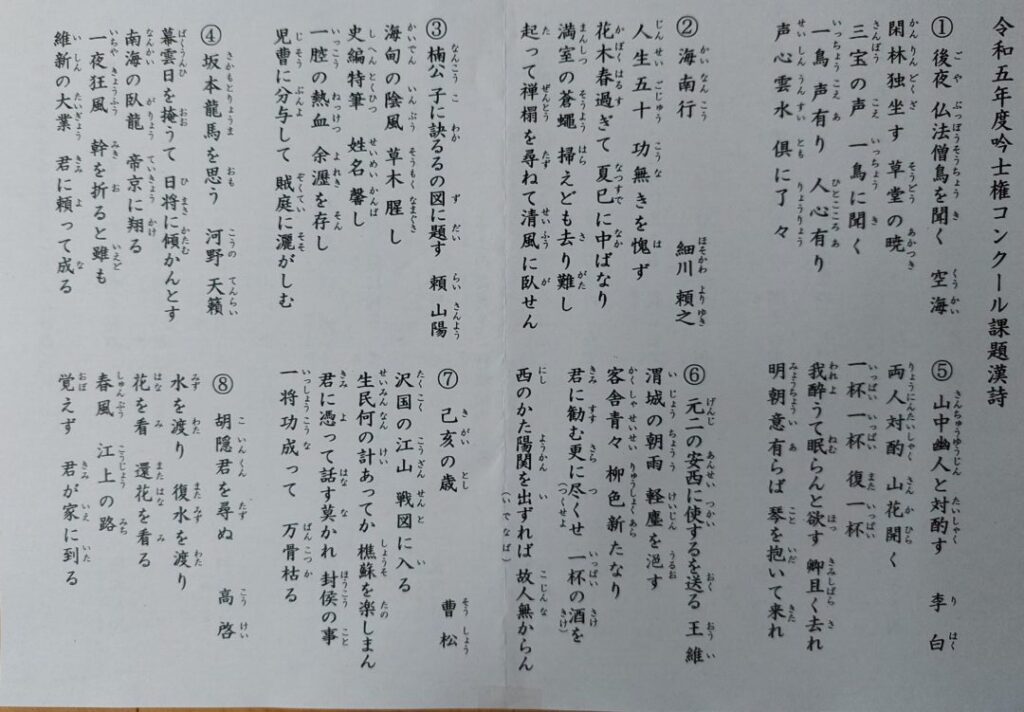 令和五年度吟士権コンクール課題漢詩
① 後夜 仏法僧鳥を聞く 空海
閑林独坐す 草堂の暁
三宝の声 一鳥に聞く
一鳥声有り 人心有り
声心雲水 倶に了々
② 海南行 細川 頼之
人生五十 功無きを愧ず
花木春過ぎて 夏已に中ばなり
満室の蒼蠅 掃えども去り難し
起って禅榻を尋ねて清風に臥せん
③ 楠公 子に訣るるの図に題す 頼 山陽
海甸の陰風 草木腥し
史編特筆 姓名馨し
一腔の熱血 余瀝を存し
児曹に分与して 賊庭に灑がしむ
④ 坂本龍馬を思う 河野 天籟
暮雲日を掩うて 日将に傾かんとす
南海の臥龍 帝京に翔る
一夜狂風 幹を折ると雖も
維新の大業 君に頼って成る
⑤ 山中幽人と対酌す 李 白
両人対酌 山花開く
一杯一杯 復一杯
我酔うて眠らんと欲す 卿且く去れ
明朝意有らば 琴を抱いて来れ
⑥ 元二の安西に使するを送る 王維
渭城の朝雨 軽塵を浥す
客舎青々 柳色新たなり
君に勧む更に尽くせ 一杯の酒を
(つくせよ さけ)
西のかた陽関を出ずれば 故人無からん
(いでなば)
⑦ 己亥の歳 曹 松
沢国の江山 戦図に入る
生民何の計あってか 樵蘇を楽しまん
君に憑って話す莫かれ 封侯の事
一将功成って 万骨枯る
⑧ 胡隠君を尋ぬ 高 啓
水を渡り 復水を渡り
花を看 還花を看る
春風 江上の路
覚えず 君が家に到る